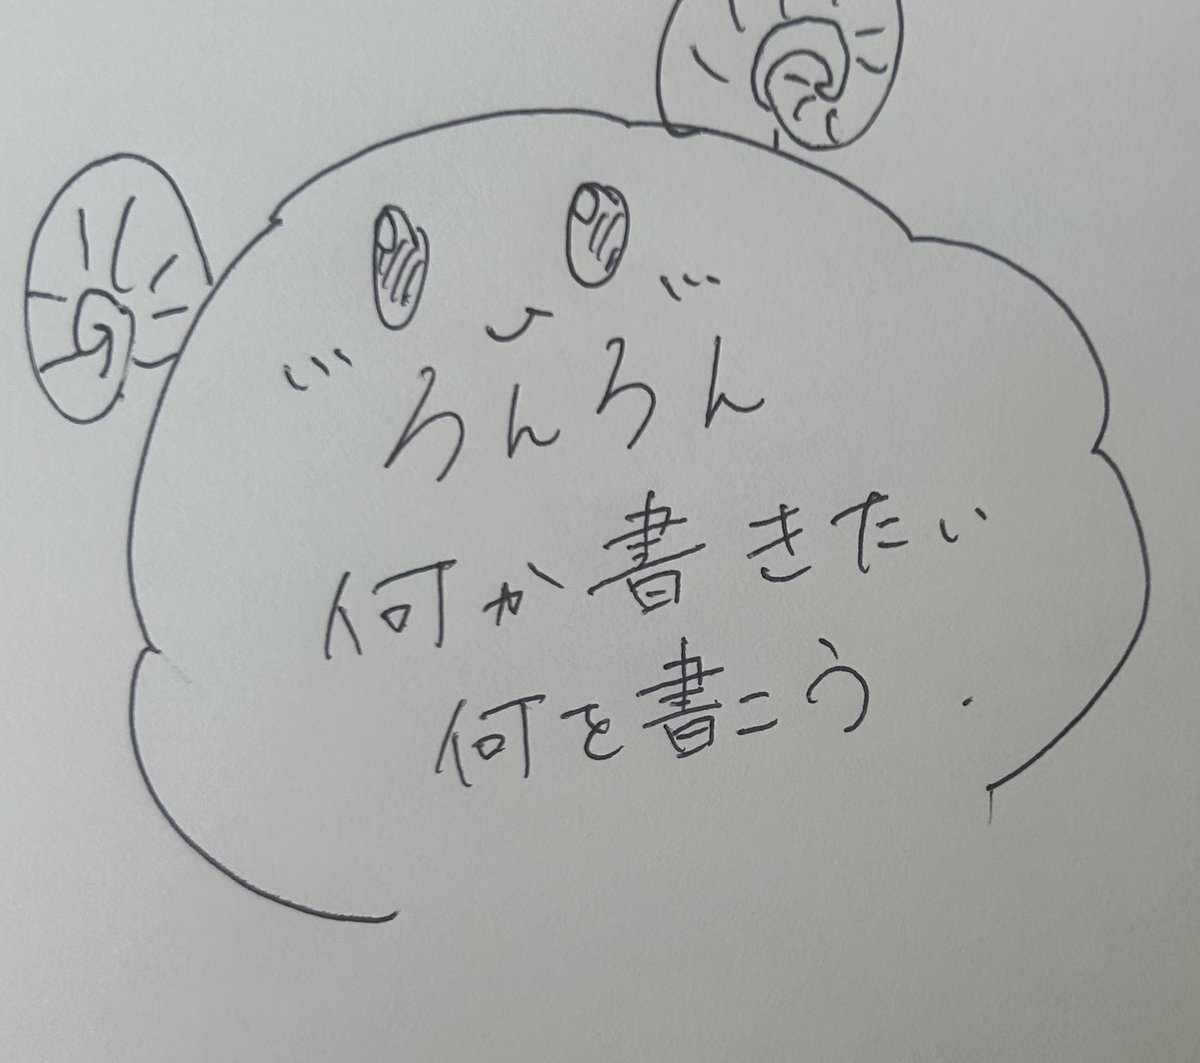 ろんろん
何か書きたい
何を書こう.